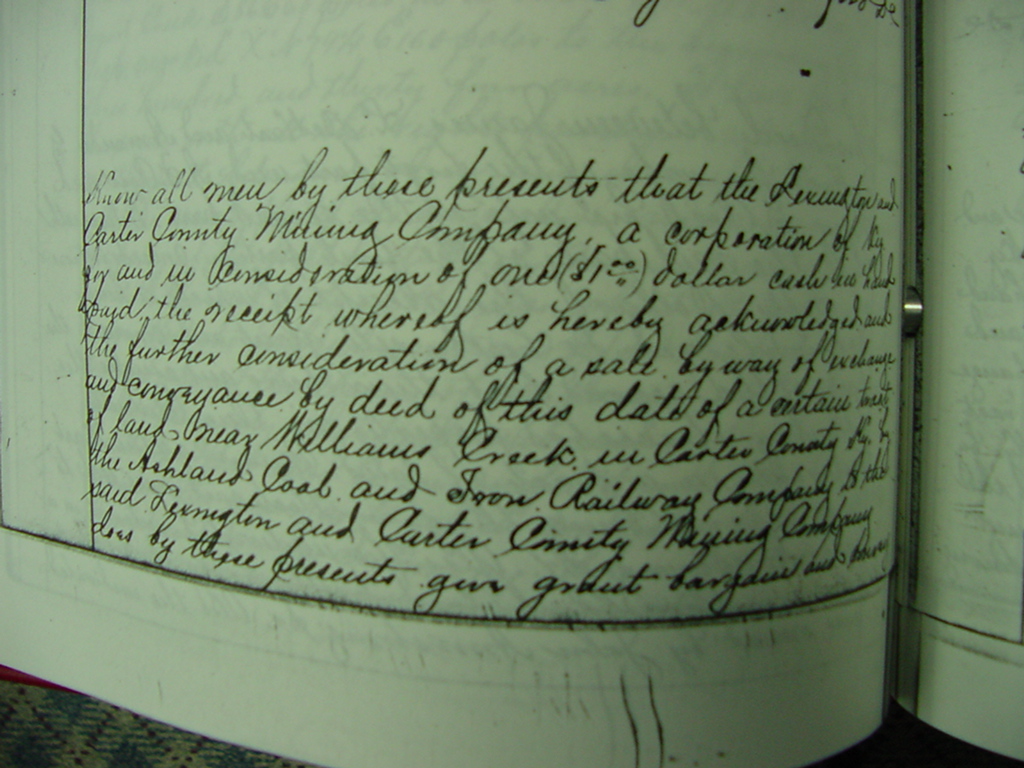 Know all men by these presents that the Lexington and
Carter County Mining Company, a corporation of Ky
for and in consideration of one ($1.00) dollar cash in hand
paid, the receipt whereof is hereby acknowledged and
the further consideration of a sale by way of exchange
and conveyance by deed of this date of a certain tract
of land near Williams Creek in Carter County Ky. by
the Ashland Coal and Iron Railway Company to the
said Lexington and Carter County Mining Company
does by these presents give grant bargain and